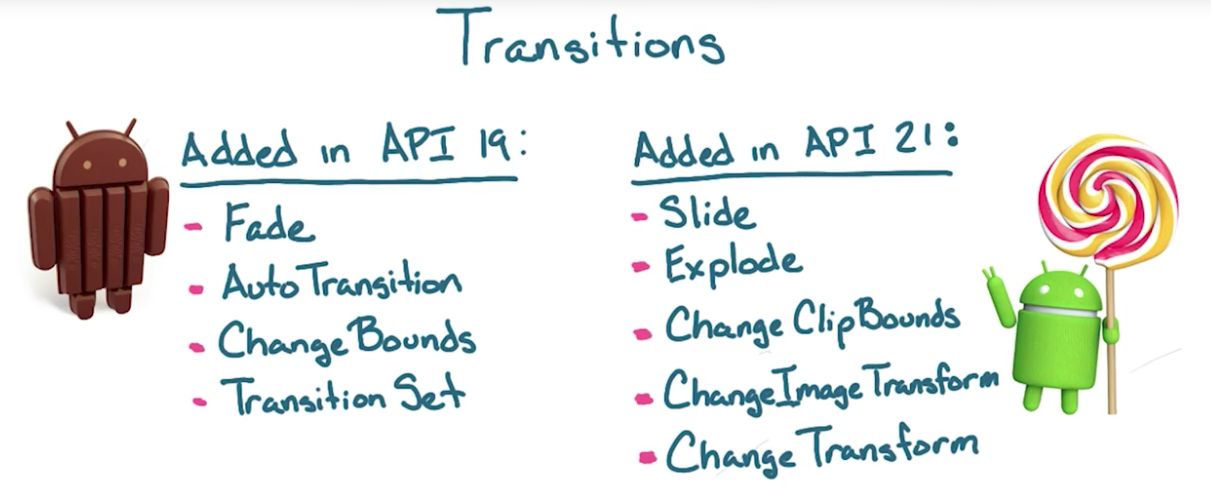 Transitions
Added in API 19:
- Fade
- AutoTransition
- ChangeBounds
- TransitionSet
Added in API 21:
- Slide
- Explode
- ChangeClipBounds
- ChangeImageTransform
- ChangeTransform